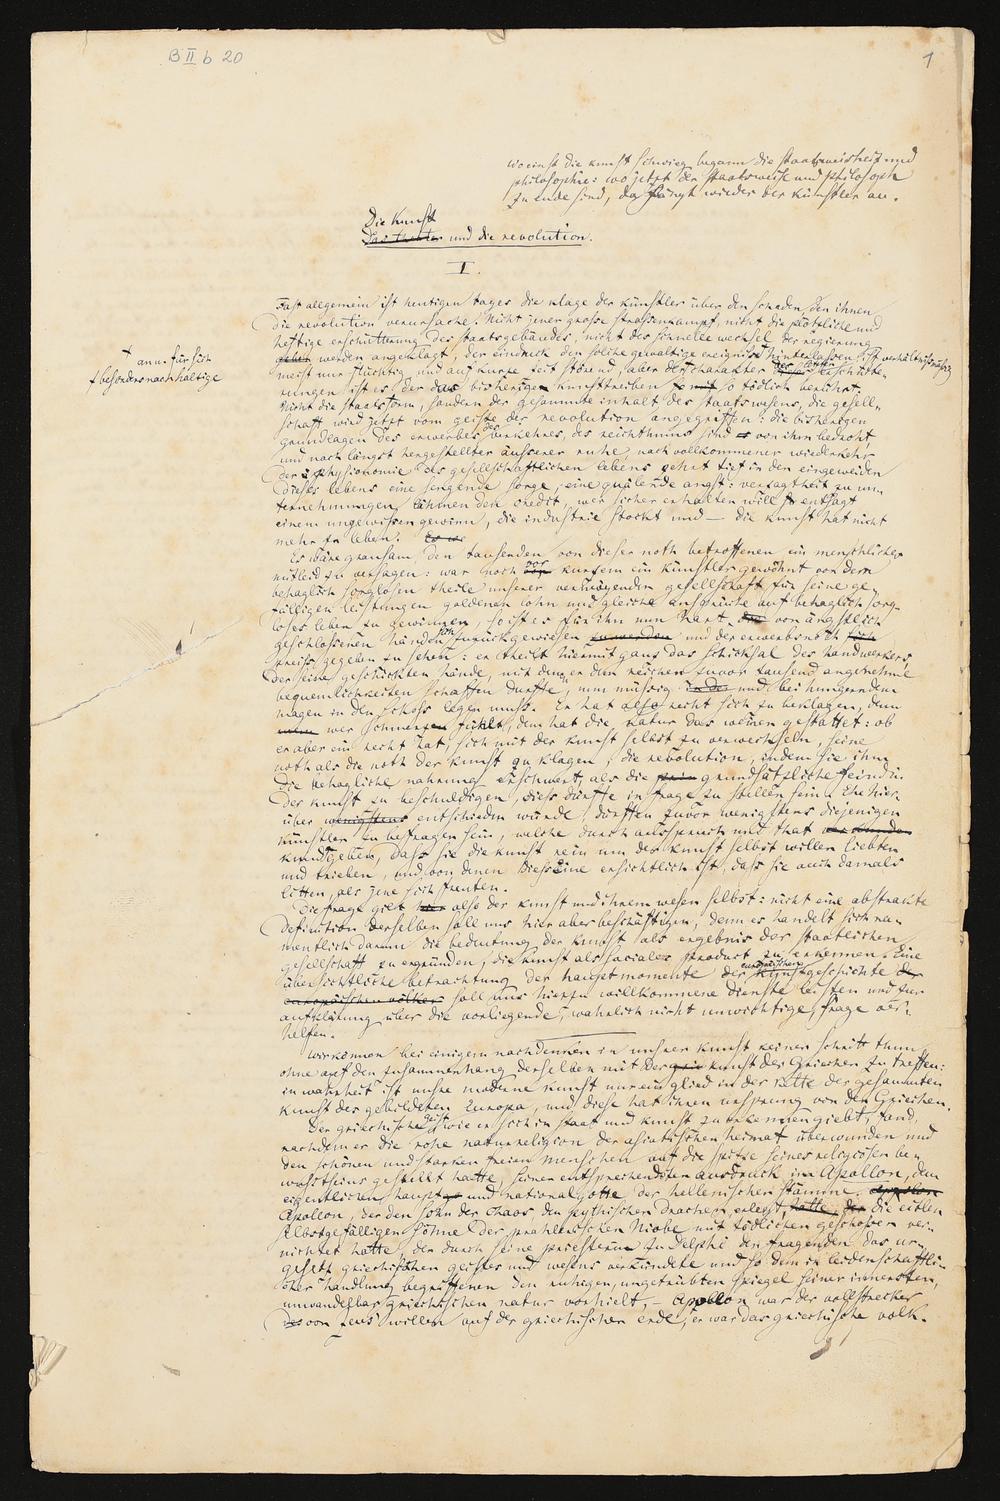 B II b 20
1
wo einst die kunst schwieg, begann die staatsweisheit und
philosophie: wo jetzt der staatsweise und philosoph
zu ende sind, da fängt wieder der künstler an.
Die Kunst
Das theater und die revolution.
I.
Fast allgemein ist heutigen tages die klage der künstler über den schaden, den ihnen
die revolution verursache. Nicht jener grosse strassenkampf, nicht die plötzliche und
heftige erschütterung des staatsgebäudes, nicht der schnelle wechsel der regierung
werden angeklagt, der eindruck den solche gewaltige ereignisse hinterlassen, ist verhältnissmässig
† an u. für sich
† besonders nachhaltige
meist nur flüchtig und auf kurze zeit störend, aber der charakter der letzten erschütte-
rungen ist es, der das bisherige kunsttreiben so tödlich berührt.
Nicht die staatsform, sondern der gesammte inhalt des staatswesens, die gesell-
schaft wird jetzt vom geiste der revolution angegriffen: die bisherigen
grundlagen des erwerbes, des verkehres, des reichthums sind von ihm bedroht,
und nach längst hergestellter äusserer ruhe, nach vollkommener wiederkehr
der physionomie des gesellschaftlichen lebens zehrt tief in den eingeweiden
dieses lebens eine sengende sorge, eine quälende angst: verzagtheit zu un-
ternehmungen lähmen den credit, wer sicher erhalten will entsagt
einem ungewissen gewinn, die industrie stockt und — die kunst hat nicht
mehr zu leben. Es we
Es wäre grausam, den tausenden von dieser noth betroffenen ein menschliches
mitleid zu versagen: war noch vor kurzem ein künstler gewöhnt von dem
behaglich sorglosen theile unserer vermögenden gesellschaft für seine ge-
fälligen leistungen goldenen lohn und gleiche ansprüche auf behaglich sorg-
loses leben zu gewinnen, so ist es für ihn nun hart, von ängstlich
geschlossenen händen sich zurückgewiesen zu werden und der erwerbsnoth sich
preiss gegeben zu sehen: er theilt hiermit ganz das schicksal des handwerkers,
der seine geschickten hände, mit denen er dem reichen zuvor tausend angenehme
bequemlichkeiten schaffen durfte, nun müssig in den und bei hungerndem
magen in den schoss legen muss. Er hat also recht sich zu beklagen, denn
wer schmerzen fühlt, dem hat die natur das weinen gestattet: ob
er aber ein recht hat, sich mit der kunst selbst zu verwechseln, seine
noth als die noth der kunst zu klagen, die revolution, indem sie ihm
die behagliche nahrung erschwert, als die grundsätzliche feindin
der kunst zu beschuldigen, diess dürfte in frage zu stellen sein. Ehe hier-
über wenigstens entschieden würde, dürften zuvor wenigstens diejenigen
künstler zu befragen sein, welche durch ausspruch und that
kundgeben, dass sie die kunst rein um der kunst selbst willen liebten
und trieben, und von denen diess Eine ersichtlich ist, dass sie auch damals
litten, als jene sich freuten.
Die frage gilt hier also der kunst und ihrem wesen selbst: nicht eine abstrakte
definition derselben soll uns hier aber beschäftigen, denn es handelt sich na-
mentlich darum die bedeutung der kunst als ergebnis des staatlichen
gesellschaft zu ergründen, die kunst als sociales product zu erkennen. Eine
übersichtliche betrachtung der hauptmomente der europäischen kunstgeschichte der
europäischen völker soll uns hierzu willkommene dienste leisten und zur
aufklärung über die vorliegende, wahrlich nicht unwichtige, frage ver-
helfen.
Wir können bei einigem nachdenken in unsrer kunst keinen schritt thun,
ohne auf den zusammenhang derselben mit der kunst der Griechen zu treffen:
in wahrheit ist unsre moderne kunst nur ein glied in der kette der gesammten
kunst des gebildeten Europa, und diese hat ihren ursprung von den Griechen.
Der griechische geist, wie er sich in staat und kunst zu erkennen giebt, fand,
nachdem er die rohe naturreligion der asiatischen heimat überwunden und
den schönen und starken freien menschen auf die spitze seines religiösen be-
wusstseins gestellt hatte, seinen entsprechendsten ausdruck im Apollon, dem
eigentlichen haupt und nationalgotte der hellenischen stämme. Apollon
Apollon, der den sohn der chaos den pythischen drachen, erlegt, hatte der die eitlen
selbstgefälligen söhne der prahlerischen Niobe mit tödlichen geschossen ver-
nichtet hatte, der durch seine priesterin zu Delphi den fragenden das ur-
gesetz griechischen geistes und wesens verkündete und so dem in leidenschaftli-
cher handlung begriffenen den ruhigen, ungetrübten spiegel seiner innersten,
unwandelbar griechischen natur vorhielt, — Apollon war der vollstrecker
von Zeus' willen auf der griechischen erde, er war das griechische volk.